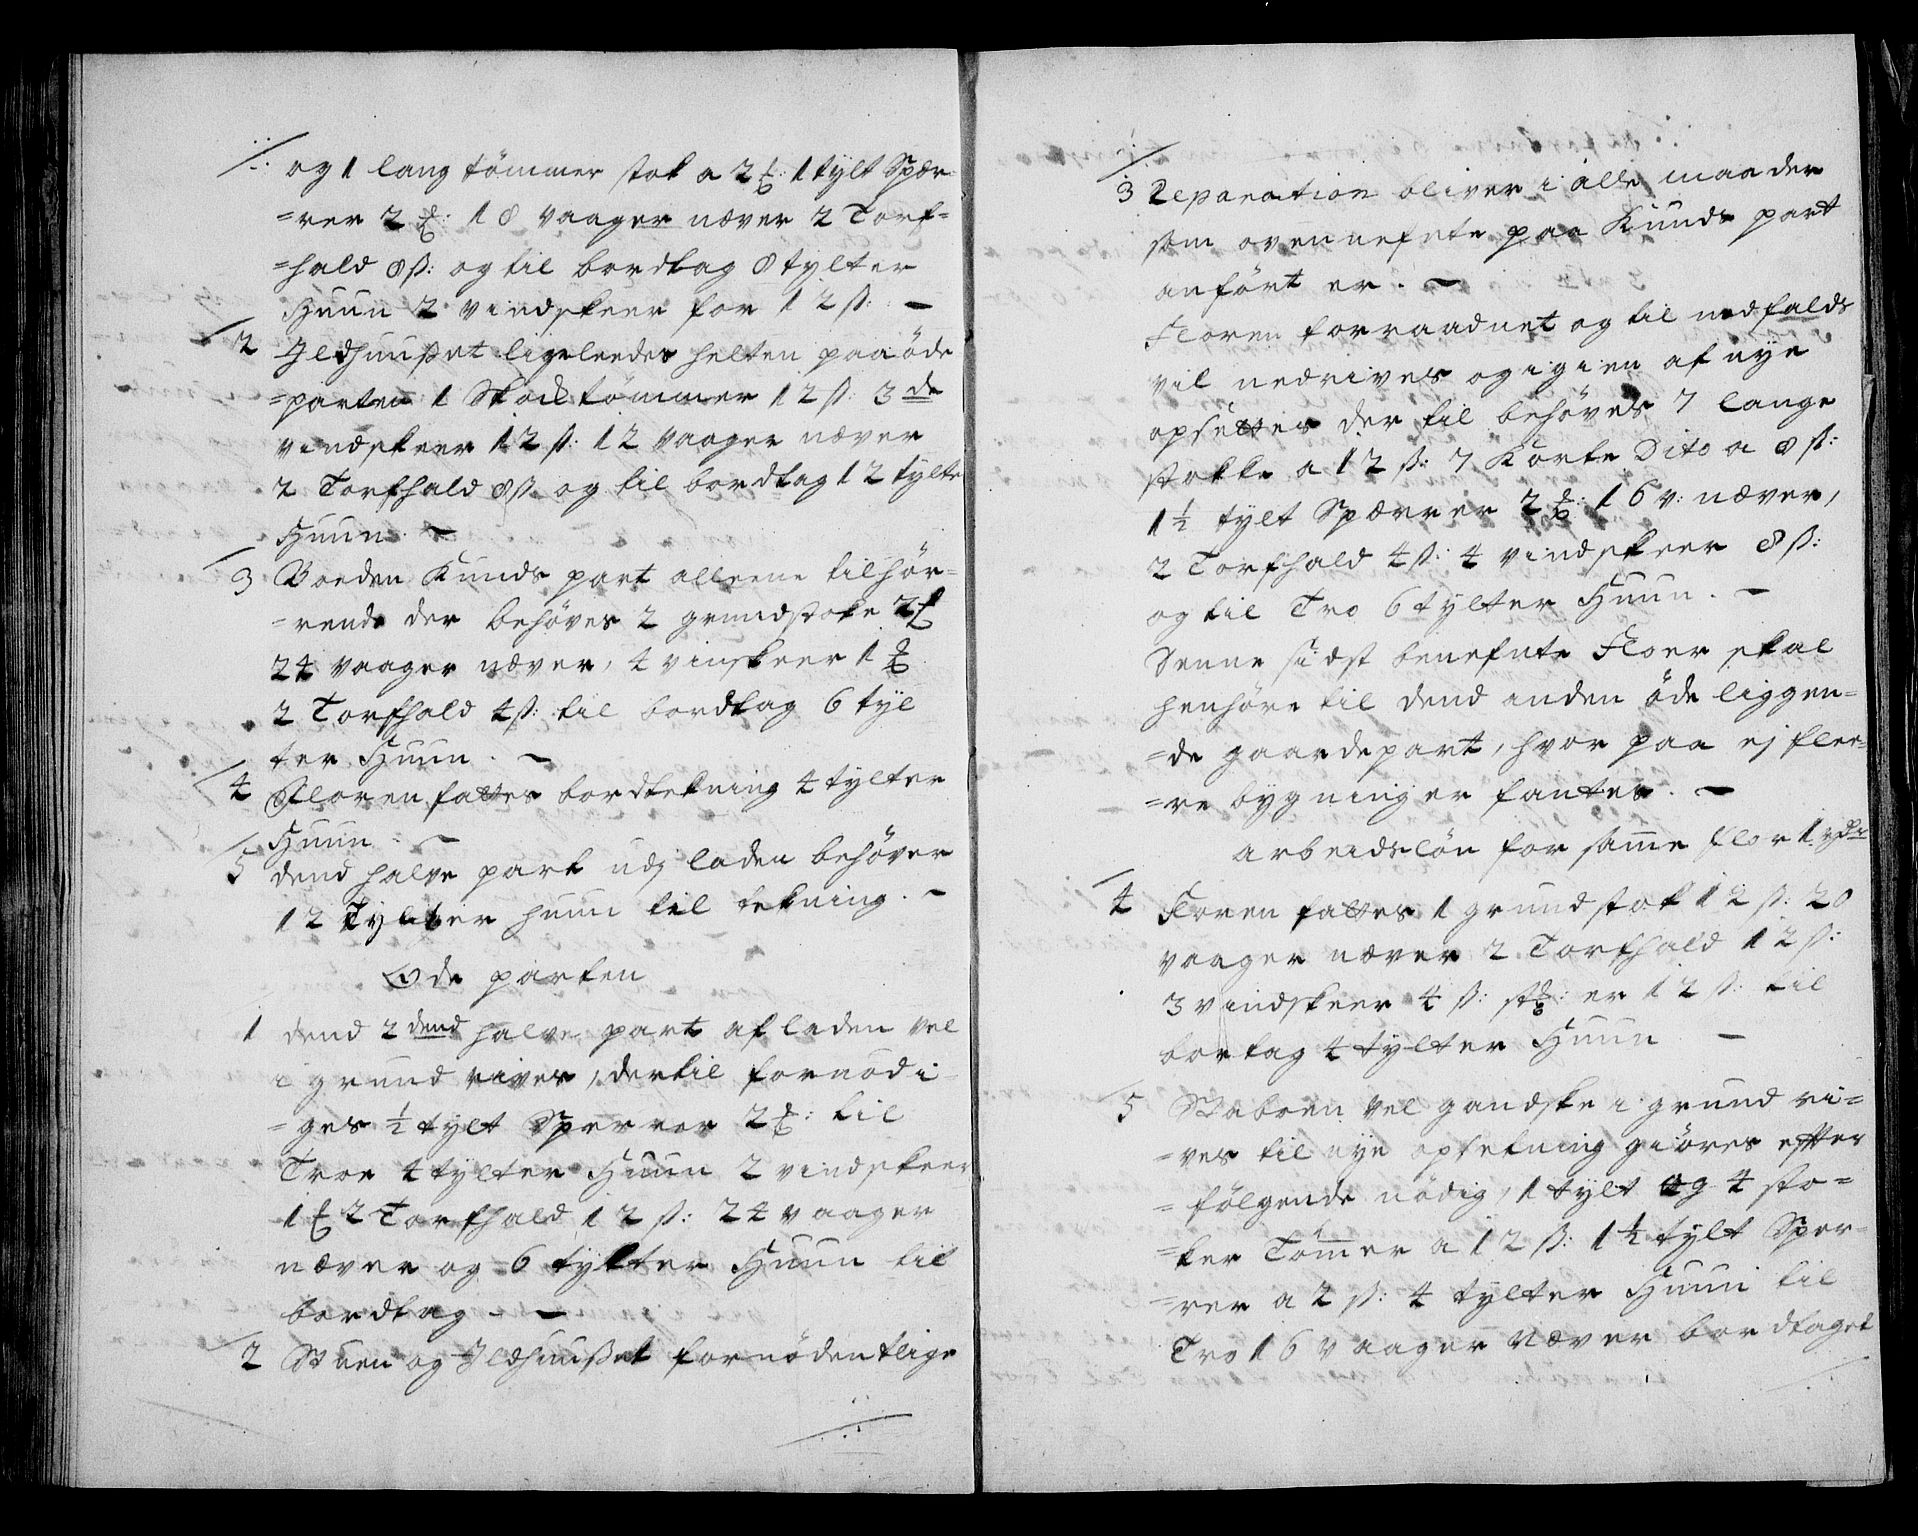 og 1 lang tömmer stok a 2 ℔: 1 tylt Spær-
=rer 2 ℔: 18 vaager næver 2 Torf=
=hald 8 ß: og til bordtag 8 tylter
Huun 2 vindskeer for 12 ß: -
2 Jldhuußet ligeleedes helten paa öde
=parten 1 Stock tömmer 12 ß: 3 de
vindskeer 12 ß: 12 vaager næver
2 Torfhald 8 ß og til bordtag 12 tylte
Huun. -
3 Boeden Kunds part alleene tilhör-
=rende der behöves 2 grundstoke 2 ℔
24 vaager næver, 4 vinskeer 1 ℔
2 Torfhald 4 ß: til bordtag 6 tyl
ter Huun. -
4 Floren fattes bordtekning 4 tylter
Huun. -
5 dend halve part udj laden behöver
12 Tylter huun til tekning. -
Öde parten
1 dend 2 dend halve part af laden vel
i grund rives, dertil fornödi-
=ges ½ tylt Sperrer 2 ℔: til
Troe 4 tylter Huun 2 vindskeer
1 ℔ 2 Torfhald 12 ß: 24 vaager
næver og 6 tylter Huun til
bordtag - -
2 Stuen og Jldhuußet fornödentlige
3 Reparation bliver i alle maader
som ovennefnte paa Kunds part
anfört er. -
Floren forraadnet og til nedfalds
vil nedrives og igien af nye
opsettes der til behöves 7 lange
stokke a 12 ß: 7 Korte Dito a 8 ß:
1½ tylt Spærrer 2 ℔: 16 v: næver,
2 Torfhald 4 ß: 4 vindskeer 8 ß:
og til Tro 6 tylter Huun. -
Denne sidst benefnte Floer skal
henhöre til dend anden öde liggen=
=de gaardepart, hvor paa ej flee=
=re bygninger fantes. -
arbeidslön for samme flor 1 rdr
4 Floren fattes 1 grundstok 12 ß: 20
vaager næver 2 Torfhald 12 ß:
3 vindskeer 4 ß: st℔: er 12 ß: til
bortag 4 tylter Huun -
5 Staboen vel gandske i grund ri=
=ves til nye opsetning giöres efter
=fölgende nödig, 1 tylt og 4 sto=
=ker Tömer a 12 ß: 1½ tylt Sper-
=rer a 2 ß: 4 tylter Huun til
Tro 16 vaager næver bordtaget